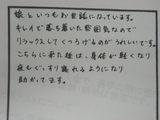 娘といつもお世話になっています。
キレイで落ち着いた雰囲気なので
リラックスしてくつろげるのがうれしいです。
こちらに来た後は、身体が軽くなり
夜もぐっすり眠れるようになり
助かってます。